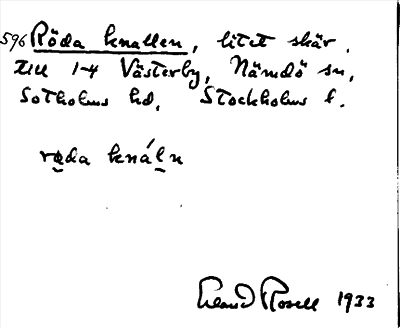 596 Röda knallen, litet skär
till 1-4 Västerby, Nämdö sn,
Sotholms hd, Stockholms l.
röda knáln
Erland Rosell 1933